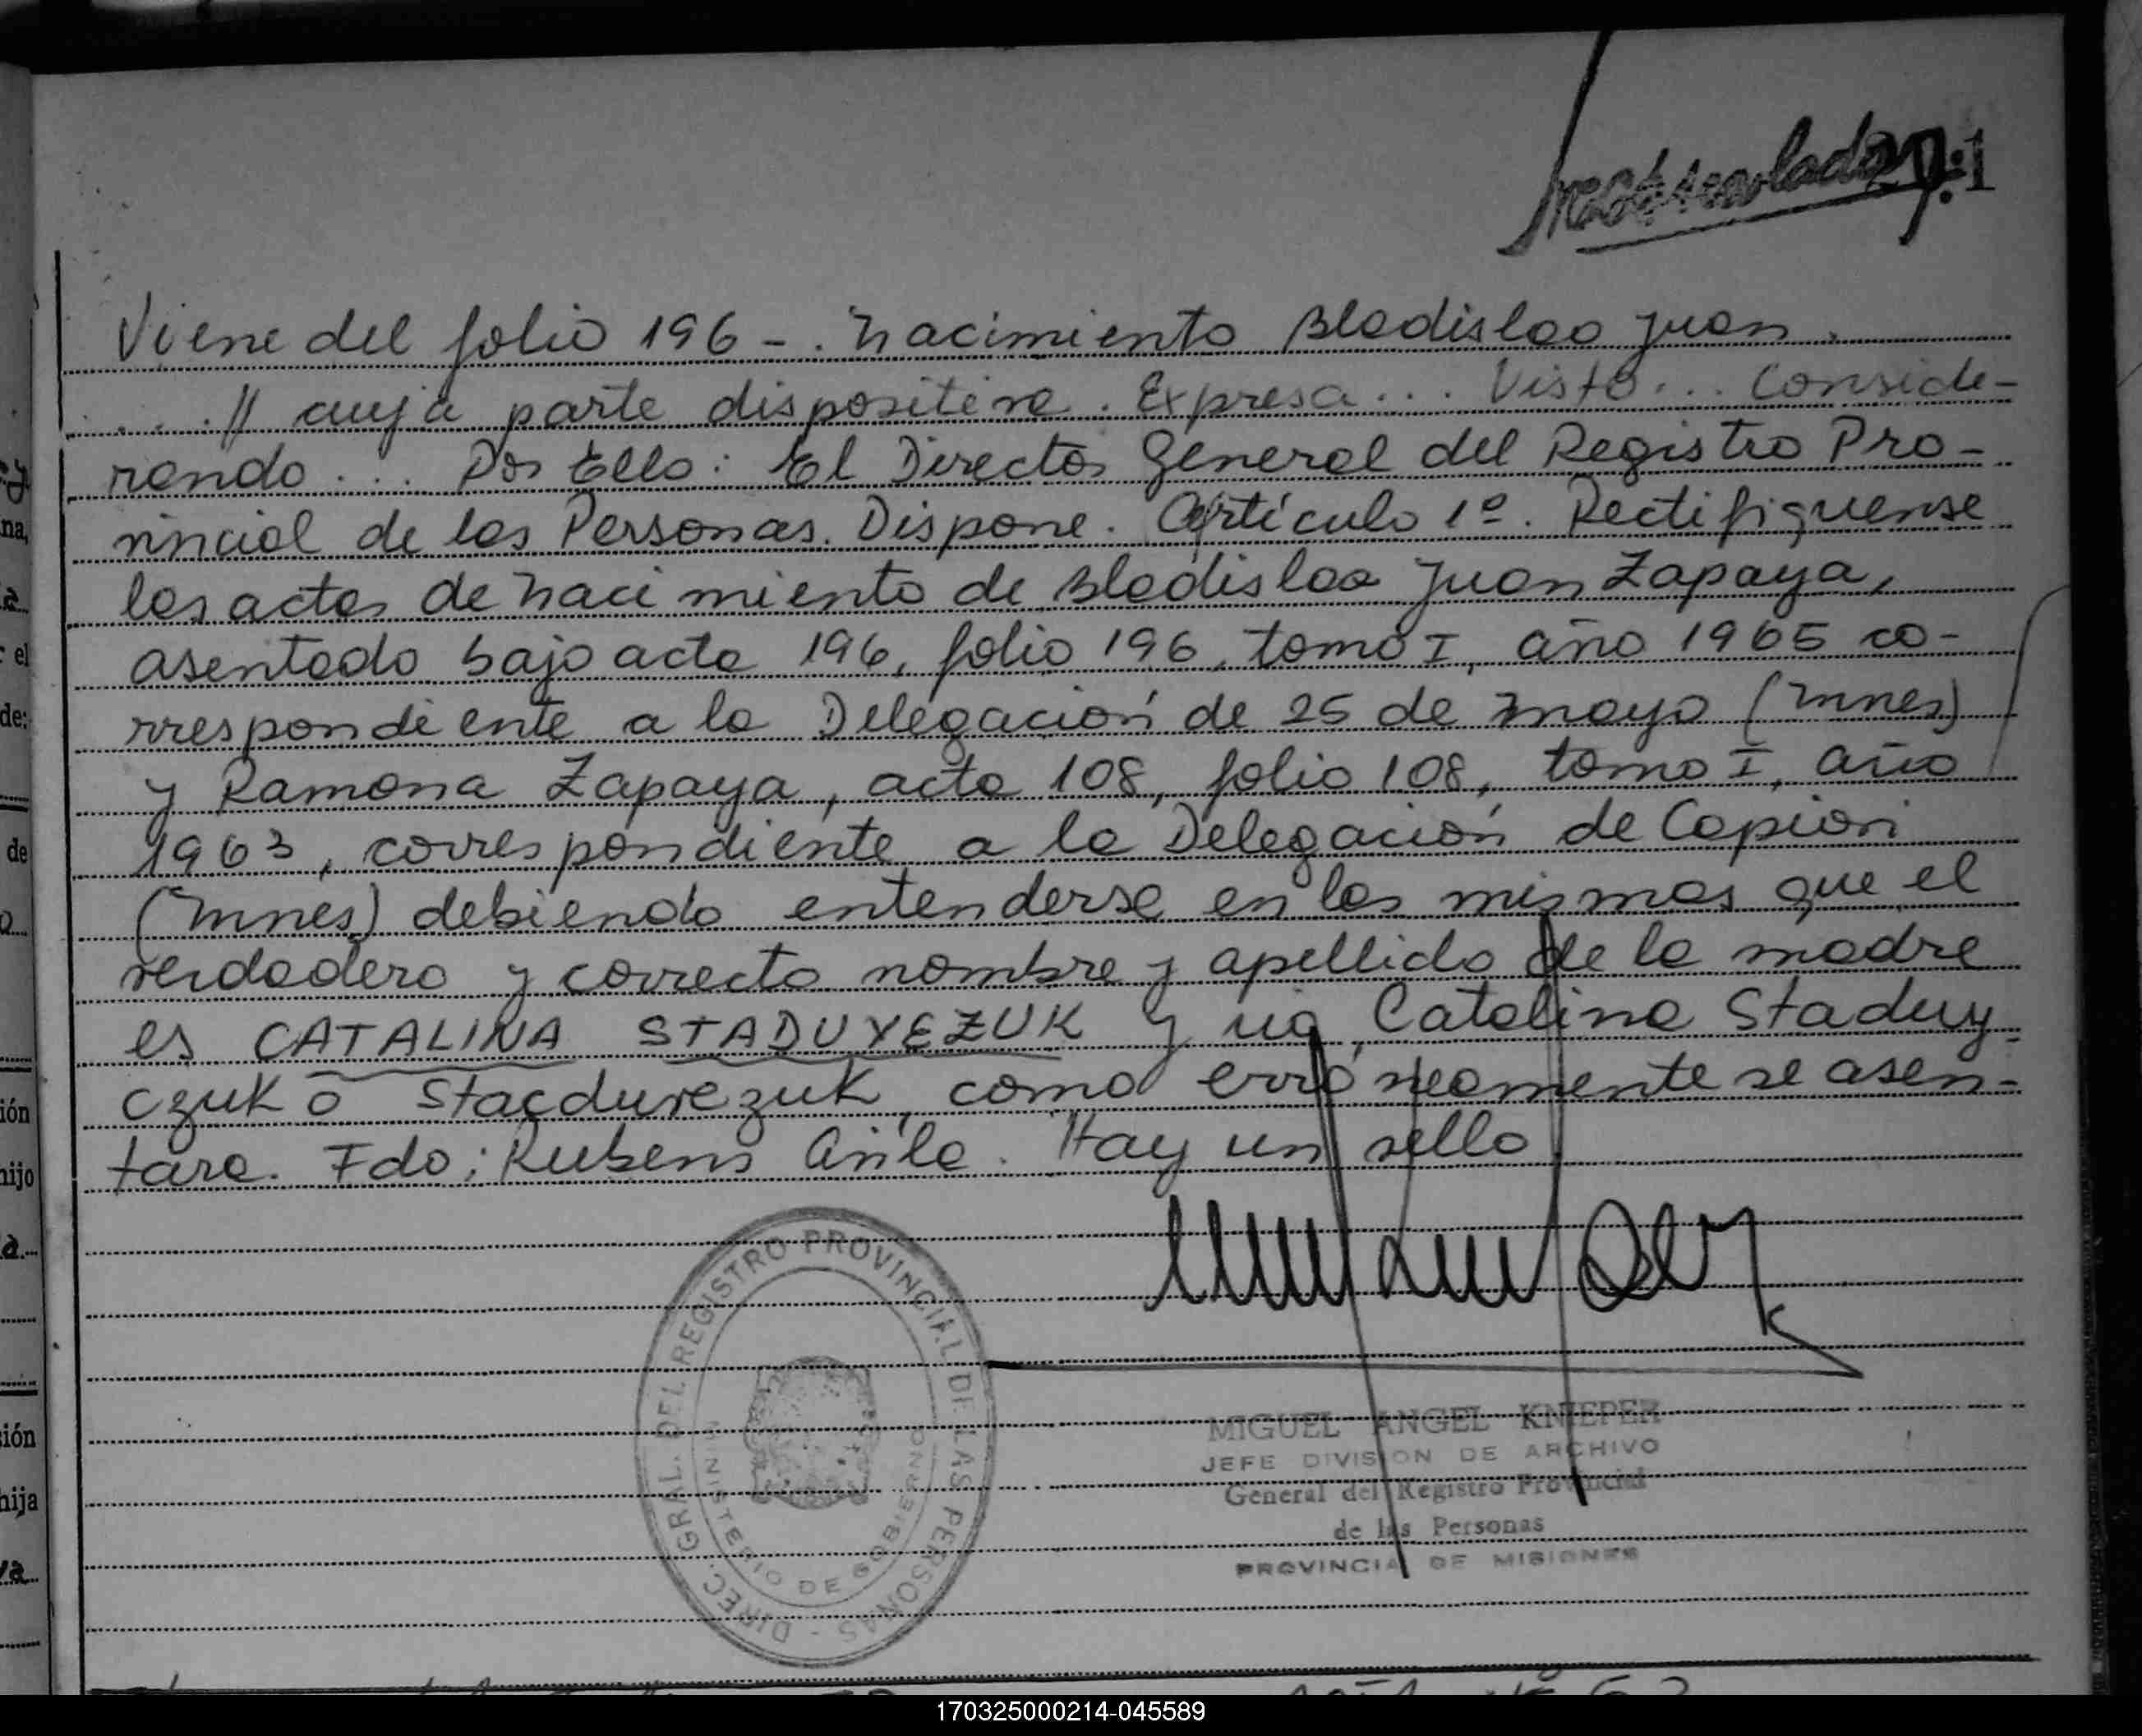 Viene del folio 196 -. Nacimiento Bladislao Juan.
....// cuya parte dispositiva. Expresa... Visto... Conside-
rando... Por Ello: El Director General del Registro Pro-
vincial de las Personas. Dispone. Artículo 1º. Rectifiquense
las actas de nacimiento de Bladislao Juan Zapaya,
asentado bajo acta 196, folio 196, tomo I, año 1965 co-
rrespondiente a la Delegación de 25 de Mayo (Mnes)
y Ramona Zapaya, acta 108, folio 108, tomo I, año
1963, correspondiente a la Delegación de Capiovi
(Mnes) debiendo entenderse en las mismas que el
verdadero y correcto nombre y apellido de la madre
es CATALINA STADUYEZUK y no Catalina Staduy-
czuk o Stacdurezuk, como erróneamente se asen-
tara. Fdo; Rubens Avila. Hay un sello
DIREC. GRAL. DEL REGISTRO PROVINCIAL DE LAS PERSONAS -
MINISTERIO DE GOBIERNO
MIGUEL ANGEL KNIEPER
JEFE DIVISION DE ARCHIVO
General del Registro Provincial
de las Personas
PROVINCIA DE MISIONES
na,
el
de:
de
ión
hijo
ión
hija
170325000214-045589